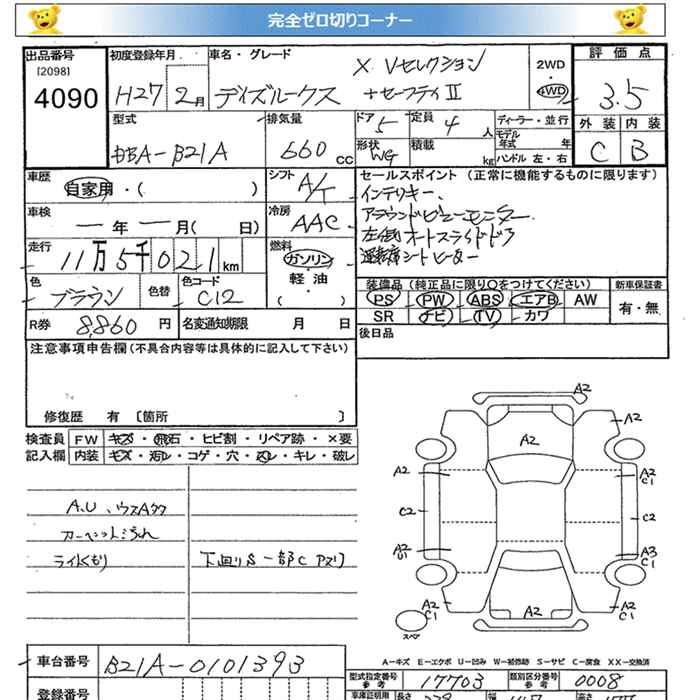 完全ゼロ切りコーナー
出品番号 初度登録年月 車名・グレード 2WD・4WD 評価点
[2098] 4090 H27 2月 デイズルークス X Vセレクション +セーフティII 3.5
型式 排気量 ドア 5 定員 4人 ディーラー・並行 外装 内装
DBA-B21A 660cc 形状 WG 積載 kg モデル年式 年 ハンドル 左・右 C B
車歴 自家用・( ) シフト A/T セールスポイント (正常に機能するものに限ります)
インテリキー、
車検 ー年ー月( 日) 冷房 AAC アラウンドビューモニター、
走行 11万5千021km 燃料 ガソリン・軽・油( ) 左側オートスライドドア
運転席シートヒーター
色 ブラウン 色替 色コード C12 装備品 (純正品に限り○をつけてください) 新車保証書
PS PW ABS エアB AW 有・無
SR ナビ TV カワ
R券 8,860円 名変通知期限 月 日 後日品
注意事項申告欄(不具合内容等は具体的に記入して下さい)
修復歴 有 [箇所 ]
検査員 FW キズ・飛石・ヒビ割・リペア跡・×要
記入欄 内装 キズ・汚レ・コゲ・穴・スレ・キレ・破レ
A.U、ウスAタタ
カーペット汚れ
ライトくもり 下廻りS 一部C
A2
A2 A2
A2 A2 C1
C2 C2
A2 U1 A3 C1
A2 C1 A2 A2 C1
スペア
A-キズ E-エクボ U-凹み W-補修跡 S-サビ C-腐食 XX-交換済
車台番号 B21A-0101393 型式指定番号 参考 17703 類別区分番号 参考 0008
登録番号 車庫証明用 長さ 幅 高さ